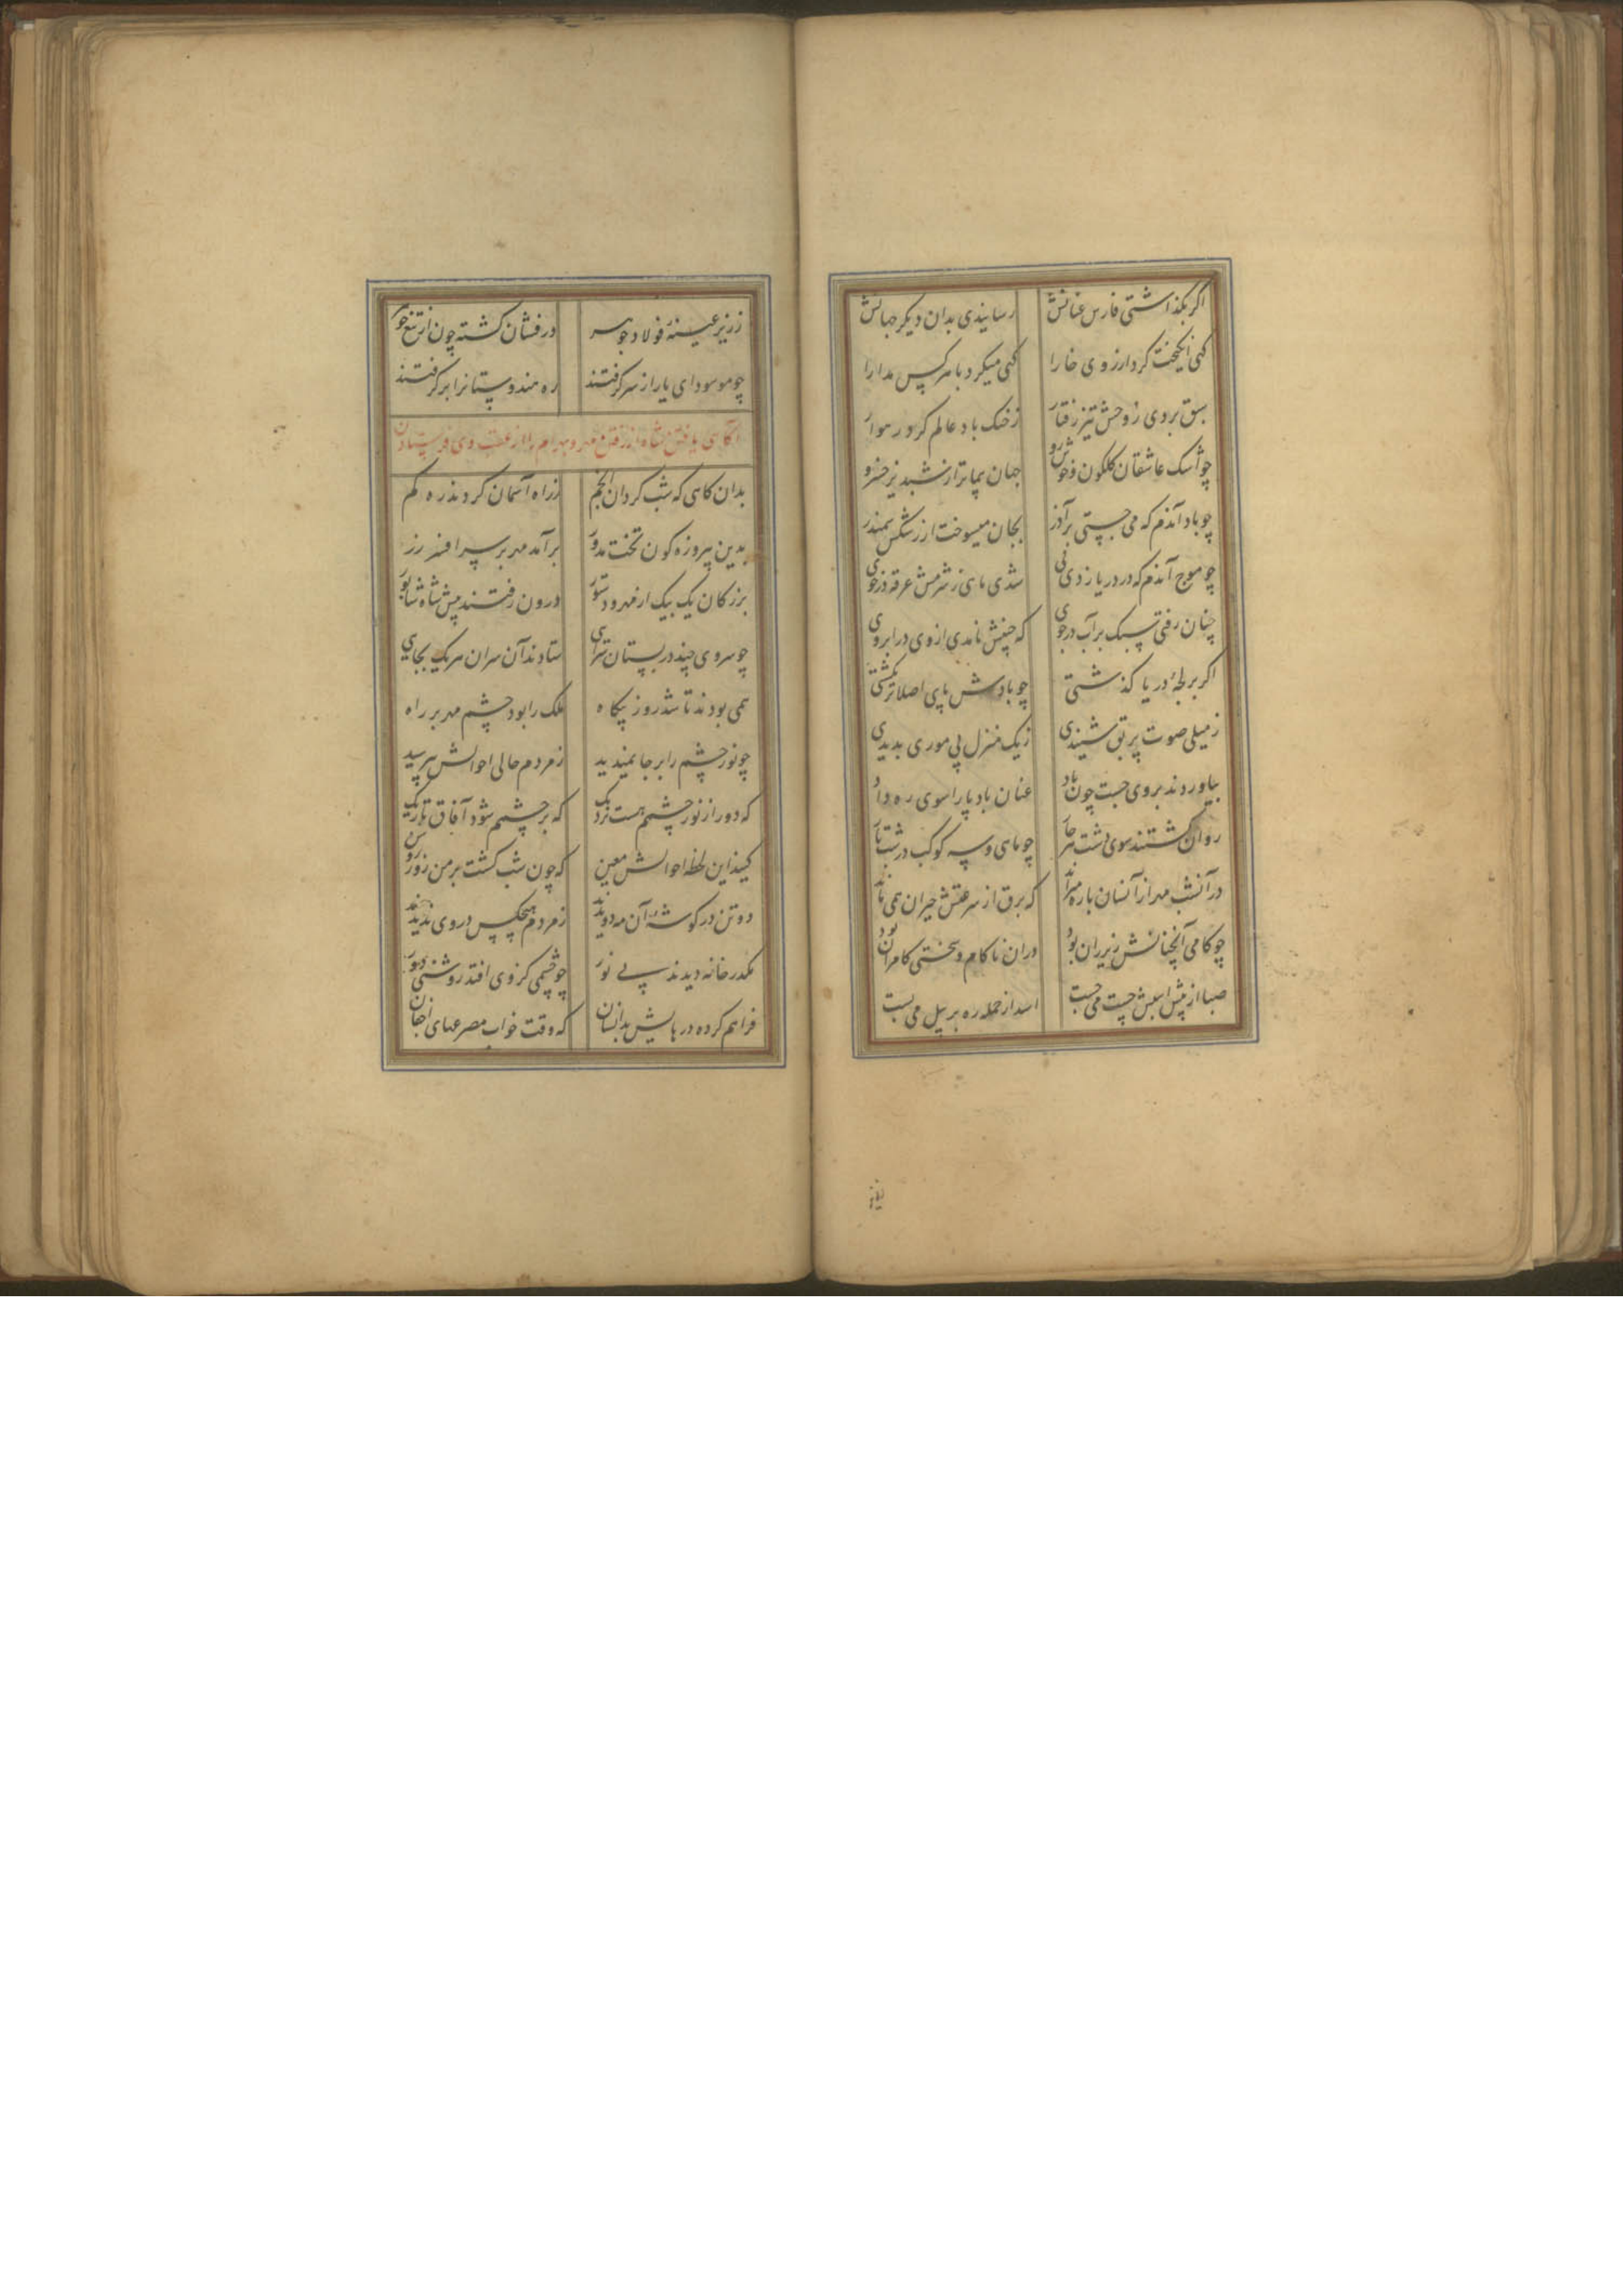 اگر بگذاشتی فارس عنانش رسانیدی بدان دیگر جهانش
گهی انگیخت گرد از روی خارا گهی میکرد با هر کس مدارا
سبق بردی ز وحش تیز رفتار ز خنگ باد عالم گرد رهوار
چو اشک عاشقان گلگون جهان پیماتر از شبدیز خسرو
چو باد آندم که می جستی بجان میسوخت از رشکش سمندر
چو موج آندم که در دریا زدی شدی ماهی ز شرمش غرقه در خوی
چنان رفتی سبک بر آب در جوی که چینش نامدی از وی در ابروی
اگر بر لجهٔ دریا گذشتی چو بادش پای اصلا تر نگشتی
ز میلی صوت شنیدی ز یک منزل پی موری بدیدی
بیاوردند بروی جست چون باد عنان بادپا را سوی ره داد
روان گشتند سوی دشت ناچار چو ماهی و سه کوکب در شب تار
در آنشب مهر از آنسان باره میراند که برق از سرعتش حیران همی ماند
چو کامی آنچنانش زیر ران بود در آن ناکام و سختی کامران بود
صبا از پیش اسبش چست می جست اسد از حمله ره بر پیل می بست
ز زیر عیبهٔ فولاد جوهر درفشان گشته چون از تیغ
چو مو سودای یار از سر گرفتند ره هندوستانرا بر گرفتند
آگاهی یافتن شاه از رفتن مهر و بهرام را از عقب وی فرستادن
بدان گاهی که شب گردان انجم ز راه آسمان کردند ره گم
بدین پیروزه گون تخت مدور برآمد مهر بر سر افسر زر
بزرگان یک بیک از مهر و دستور درون رفتند پیش شاه شاپور
چو سروی چند در بستان سرای ستادند آن سران هر یک بجای
همی بودند تا شد روز بیگاه ملک را بود چشم مهر بر راه
چو نور چشم را بر جا نمیدید ز مردم حالی احوالش بپرسید
که دور از نور چشمم هست نزدیک که بر چشمم شود آفاق تاریک
کنید این لحظه احوالش معین که چون شب گشت بر من روز روشن
دو تن در گوشهٔ آن مه دویدند ز مردم هیچکس در وی ندیدند
مکدر خانه دیدند بی نور چو چشمی کز وی افتد روشنی دور
فراهم کرده در بالینش بدانسان که وقت خواب مصرعهای